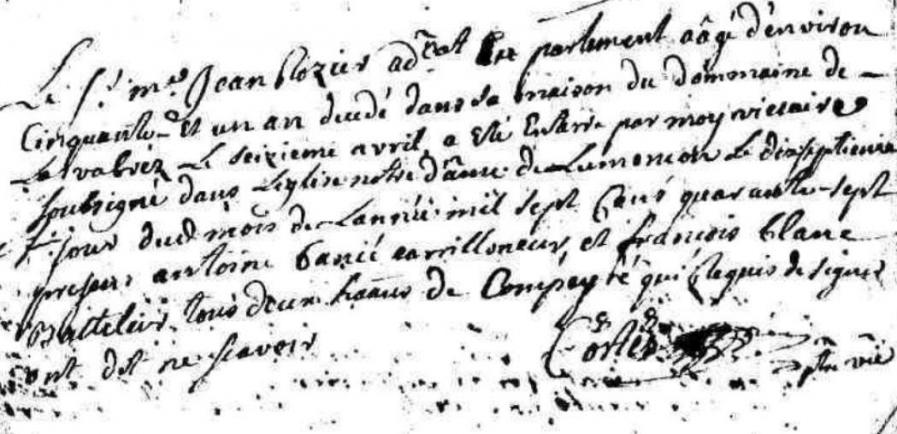 Le Sr. me Jean Rozier advat en parlement aâgé d'environ
Cinquante et un an décédé dans sa maison du dommaine de
Le seizieme avril, a esté Enterré par moy vicaire
soubsigné dans L'eglise notre dâme de Le dixseptieme
jour dud mois de L'année mil sept Cens quarante-sept
presens antoine carrilloneur, et françois blanc
Batteliers tous deux habans de Compeyre qui Requis de signer
ont dit ne scavoir
ptre vire